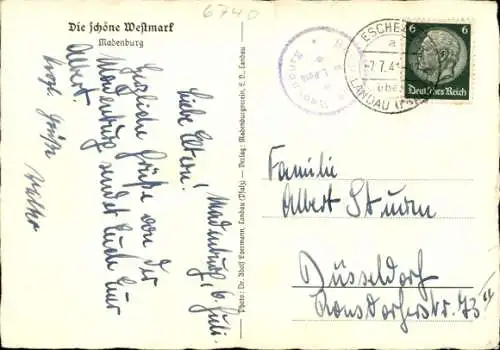 6740
Die schöne Westmark
Madenburg
Madenburg, 6. Juli.
Liebe Eltern!
Herzliche Grüße von der
Madenburg sendet Euch Euer
Albert.
herzl. Grüße
Walter
Foto: Dr. Adolf Epermann, Landau (Pfalz) — Verlag: Madenburgverein, E. V., Landau
ESCHB
a
-7.7.41
über
LANDAU (PF
6 6
Deutsches Reich
Familie
Albert Sturm
Düsseldorf
Ronsdorferstr. 73 II